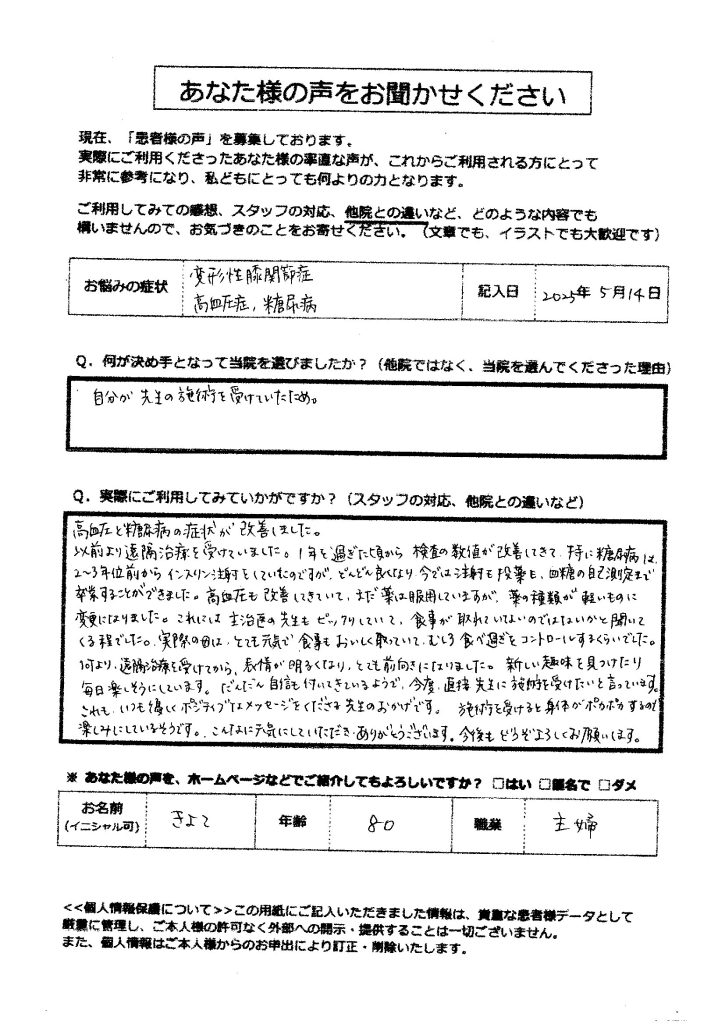 あなた様の声をお聞かせください
現在、「患者様の声」を募集しております。
実際にご利用くださったあなた様の率直な声が、これからご利用される方にとって
非常に参考になり、私どもにとっても何よりの力となります。
ご利用してみての感想、スタッフの対応、他院との違いなど、どのような内容でも
構いませんので、お気づきのことをお寄せください。（文章でも、イラストでも大歓迎です）
お悩みの症状
変形性膝関節症
高血圧症，糖尿病
記入日
2025年 5月14日
Q．何が決め手となって当院を選びましたか？（他院ではなく、当院を選んでくださった理由）
自分が 先生の施術を受けていたため。
Q．実際にご利用してみていかがですか？（スタッフの対応、他院との違いなど）
高血圧と糖尿病の症状が改善しました。
以前より遠隔治療を受けていました。1年を過ぎた頃から 検査の数値が改善してきて、特に糖尿病は、
2〜3年位前からインスリン注射をしていたのですが、どんどん良くなり 今では注射も投薬も、血糖の自己測定まで
卒業することができました。高血圧も改善してきていて、まだ薬は服用していますが、薬の種類が軽いものに
変更になりました。これには主治医の先生もビックリしていて、食事が取れていないのではないかと聞いて
くる程でした。実際の母は、とても元気で食事もおいしく取っていて、むしろ食べ過ぎをコントロールするくらいでした。
何より、遠隔治療を受けてから、表情が明るくなり、とても前向きになりました。新しい趣味を見つけたり
毎日楽しそうにしています。だんだん自信も付いてきているようで、今度、直接先生に施術を受けたいと言っています。
これも、いつも優しくポジティブなメッセージをくださる先生のおかげです。 施術を受けると身体がポカポカするので
楽しみにしているそうです。こんなに元気にしていただき、ありがとうございます。今後もどうぞよろしくお願いします。
※ あなた様の声を、ホームページなどでご紹介してもよろしいですか？ □はい □匿名で □ダメ
お名前
(イニシャル可)
きよて
年齢
80
職業
主婦
<<個人情報保護について>>この用紙にご記入いただきました情報は、貴重な患者様データとして
厳重に管理し、ご本人様の許可なく外部への開示・提供することは一切ございません。
また、個人情報はご本人様からのお申出により訂正・削除いたします。